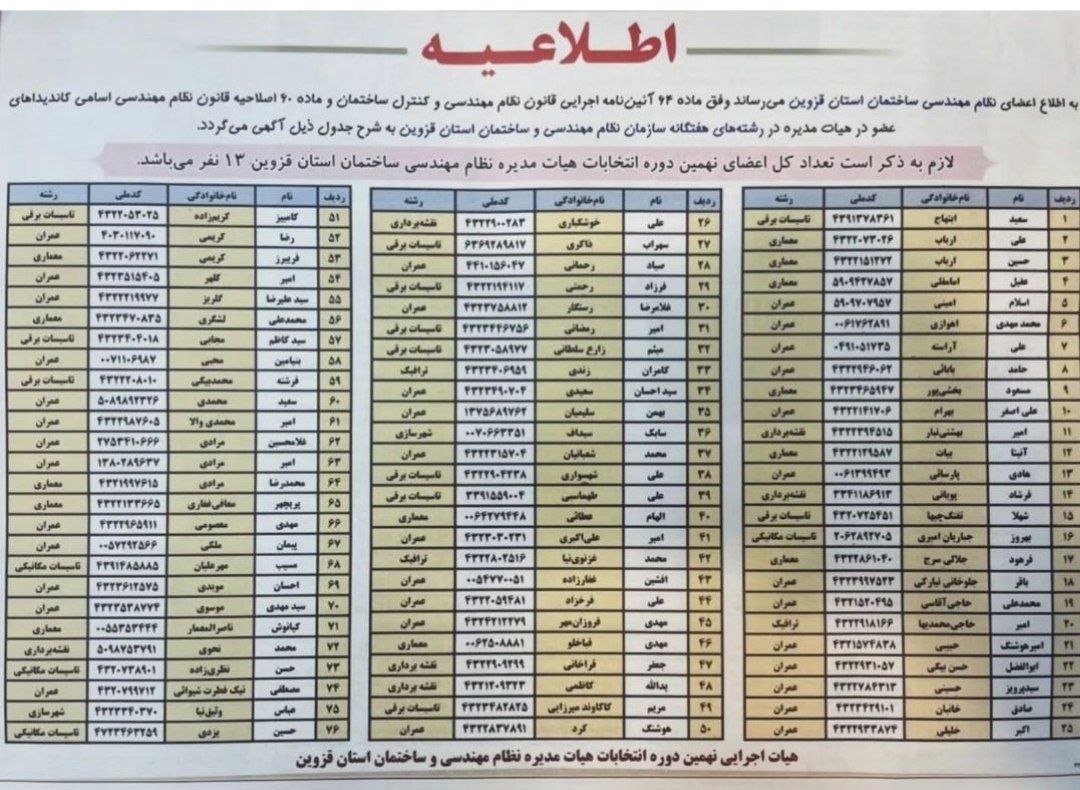 اطلاعیه
به اطلاع اعضای نظام مهندسی ساختمان استان قزوین می‌رساند وفق ماده ۶۴ آئین‌نامه اجرایی قانون نظام مهندسی و کنترل ساختمان و ماده ۶۰ اصلاحیه قانون نظام مهندسی اسامی کاندیداهای
عضو در هیات مدیره در رشته‌های هفتگانه سازمان نظام مهندسی و ساختمان استان قزوین به شرح جدول ذیل آگهی می‌گردد.
لازم به ذکر است تعداد کل اعضای نهمین دوره انتخابات هیات مدیره نظام مهندسی ساختمان استان قزوین ۱۳ نفر می‌باشد.
ردیف نام نام‌خانوادگی کدملی رشته
۱ سعید ابتهاج ۴۳۹۱۳۷۸۳۶۱ تاسیسات برقی
۲ علی ارباب ۴۳۲۲۰۷۳۰۲۶ معماری
۳ حسین ارباب ۴۳۲۲۱۵۱۲۷۲ معماری
۴ عقیل امامقلی ۵۹۰۹۴۲۷۸۵۷ معماری
۵ اسلام امینی ۵۹۰۹۷۰۷۹۵۷ عمران
۶ محمد مهدی اهوازی ۰۰۶۱۷۶۲۸۹۱ عمران
۷ علی آراسته ۰۴۹۱۰۵۱۷۳۵ عمران
۸ حامد بابائی ۴۳۲۲۹۴۶۰۶۲ عمران
۹ مسعود بخشی‌پور ۴۳۲۳۴۶۵۹۴۷ معماری
۱۰ علی اصغر بهرام ۴۳۲۲۱۴۱۷۰۶ عمران
۱۱ امیر بهشتی‌تبار ۴۳۲۲۳۹۴۵۱۵ نقشه‌برداری
۱۲ آتیتا بیات ۴۳۲۲۱۲۹۵۸۷ معماری
۱۳ هادی پارسائی ۰۰۶۱۳۹۹۴۹۳ عمران
۱۴ فرشاد پویانی ۳۳۴۱۱۸۶۹۱۳ نقشه‌برداری
۱۵ شهلا تفنگ‌چیها ۴۳۲۰۷۲۵۴۵۱ تاسیسات برقی
۱۶ بهروز جباریان امیری ۲۰۶۲۸۹۲۷۰۵ تاسیسات مکانیکی
۱۷ فرهود جلالی سرج ۴۳۲۲۸۶۱۰۴۰ معماری
۱۸ باقر جلوخانی نیارکی ۴۳۲۳۹۹۷۵۲۳ عمران
۱۹ محمدعلی حاجی‌آقاسی ۴۳۲۱۵۲۰۴۹۵ عمران
۲۰ امیر حاجی‌محمدیها ۴۳۲۲۹۱۸۱۶۶ ترافیک
۲۱ امیرهوشنگ حبیبی ۴۳۲۱۵۷۴۸۳۸ عمران
۲۲ ابوالفضل حسن بیگی ۴۳۲۲۹۳۱۰۵۷ عمران
۲۳ سیدپرویز حسینی ۴۳۲۲۷۸۴۳۱۳ عمران
۲۴ صادق خانبان ۴۳۲۳۴۲۹۱۰۱ عمران
۲۵ اکبر خلیلی ۴۳۲۲۹۳۳۸۷۴ عمران
ردیف نام نام‌خانوادگی کدملی رشته
۲۶ علی خوشکباری ۴۳۲۲۹۰۰۲۸۳ نقشه‌برداری
۲۷ سهراب ذاکری ۶۳۶۹۲۸۹۸۱۷ تاسیسات برقی
۲۸ صیاد رحمانی ۴۴۱۰۱۵۶۰۴۷ عمران
۲۹ فرزاد رحمتی ۴۳۲۲۱۹۴۱۱۷ تاسیسات برقی
۳۰ غلامرضا رستگار ۴۳۲۳۷۵۸۸۱۲ عمران
۳۱ امیر رمضانی ۴۳۲۳۴۴۶۷۵۶ تاسیسات برقی
۳۲ میثم زارع سلطانی ۴۳۲۳۰۵۸۹۷۷ تاسیسات برقی
۳۳ کامران زندی ۴۳۲۳۴۰۶۹۵۹ ترافیک
۳۴ سید احسان سعیدی ۴۳۲۳۴۹۰۷۰۴ عمران
۳۵ بهمن سلیمیان ۱۳۷۵۶۸۹۷۶۲ عمران
۳۶ سابک سیداف ۰۰۷۰۶۶۳۳۵۱ شهرسازی
۳۷ محمد شعبانیان ۴۳۲۲۳۱۵۷۰۴ عمران
۳۸ علی شهسواری ۴۳۲۲۹۰۴۲۳۸ تاسیسات برقی
۳۹ علی طهماسبی ۳۳۹۱۵۵۹۰۰۴ تاسیسات برقی
۴۰ الهام عطائی ۰۰۶۴۲۷۹۴۴۸ معماری
۴۱ امیر علی‌اکبری ۴۳۲۳۰۳۰۲۳۱ عمران
۴۲ محمد غزنوی‌نیا ۴۳۲۲۸۰۲۵۱۶ ترافیک
۴۳ افشین غفارزاده ۰۰۵۴۷۷۰۰۵۱ عمران
۴۴ علی فرخزاد ۴۳۲۲۰۵۹۴۸۱ عمران
۴۵ مهدی فروزان‌مهر ۴۳۲۴۲۱۲۲۷۹ عمران
۴۶ مهدی قباخلو ۰۰۶۲۵۰۸۸۸۱ معماری
۴۷ جعفر قراخانی ۴۳۲۲۹۰۹۲۹۹ نقشه برداری
۴۸ یدالله کاظمی ۴۳۲۱۲۰۹۳۲۳ نقشه برداری
۴۹ مریم کاکاوند میرزایی ۴۳۲۳۴۸۲۸۲۵ تاسیسات برقی
۵۰ هوشنگ کرد ۴۳۲۲۸۳۷۸۹۱ عمران
ردیف نام نام‌خانوادگی کدملی رشته
۵۱ کامبیز کریم‌زاده ۴۳۲۲۰۵۳۰۲۵ تاسیسات برقی
۵۲ رضا کریمی ۴۰۳۰۱۱۷۰۹۰ عمران
۵۳ فریبرز کریمی ۴۳۲۲۰۶۲۲۷۱ معماری
۵۴ امیر گلهر ۴۳۲۳۵۱۵۴۰۵ عمران
۵۵ سید علیرضا گلریز ۴۳۲۲۲۱۹۹۷۷ عمران
۵۶ محمدعلی لشگری ۴۳۲۳۴۷۰۸۳۵ معماری
۵۷ سید کاظم مجابی ۴۳۲۳۴۰۴۰۱۸ تاسیسات برقی
۵۸ بنیامین محبی ۰۰۷۱۱۰۶۹۸۷ عمران
۵۹ فرشته محمدبیگی ۴۳۲۲۲۰۸۰۱۰ تاسیسات برقی
۶۰ سعید محمدی ۵۰۸۹۸۹۲۳۲۶ عمران
۶۱ امیر محمدی والا ۴۳۲۲۹۸۷۶۰۵ عمران
۶۲ غلامحسین مرادی ۲۷۵۳۴۱۰۶۶۶ عمران
۶۳ امیر مرادی ۱۳۸۰۲۸۹۶۳۷ عمران
۶۴ محمدرضا مرادی ۴۳۲۱۹۹۷۶۱۵ معماری
۶۵ پریچهر معافی‌غفاری ۴۳۲۲۱۳۳۶۶۵ معماری
۶۶ مهدی معصومی ۴۳۲۲۹۶۵۹۱۱ عمران
۶۷ پیمان ملکی ۰۰۵۷۲۹۲۵۶۶ عمران
۶۸ مسیب مهرعلیان ۴۳۹۱۴۸۵۸۸۵ تاسیسات مکانیکی
۶۹ احسان مویدی ۴۳۲۳۶۱۲۵۷۵ عمران
۷۰ سید مهدی موسوی ۴۳۲۳۵۳۸۷۷۴ عمران
۷۱ کیانوش ناصرالمعمار ۰۰۵۵۳۵۳۴۴۴ معماری
۷۲ محمد نحوی ۵۰۹۸۷۵۳۷۹۱ نقشه‌برداری
۷۳ حسن نظری‌زاده ۴۳۲۰۷۳۸۹۰۱ تاسیسات مکانیکی
۷۴ مصطفی نیک فطرت شیوائی ۴۳۲۰۷۹۹۷۱۲ عمران
۷۵ عباس وثیق‌نیا ۴۳۲۳۳۴۰۳۷۰ شهرسازی
۷۶ حسین یزدی ۴۷۲۳۴۶۳۲۵۹ تاسیسات مکانیکی
هیات اجرایی نهمین دوره انتخابات هیات مدیره نظام مهندسی و ساختمان استان قزوین